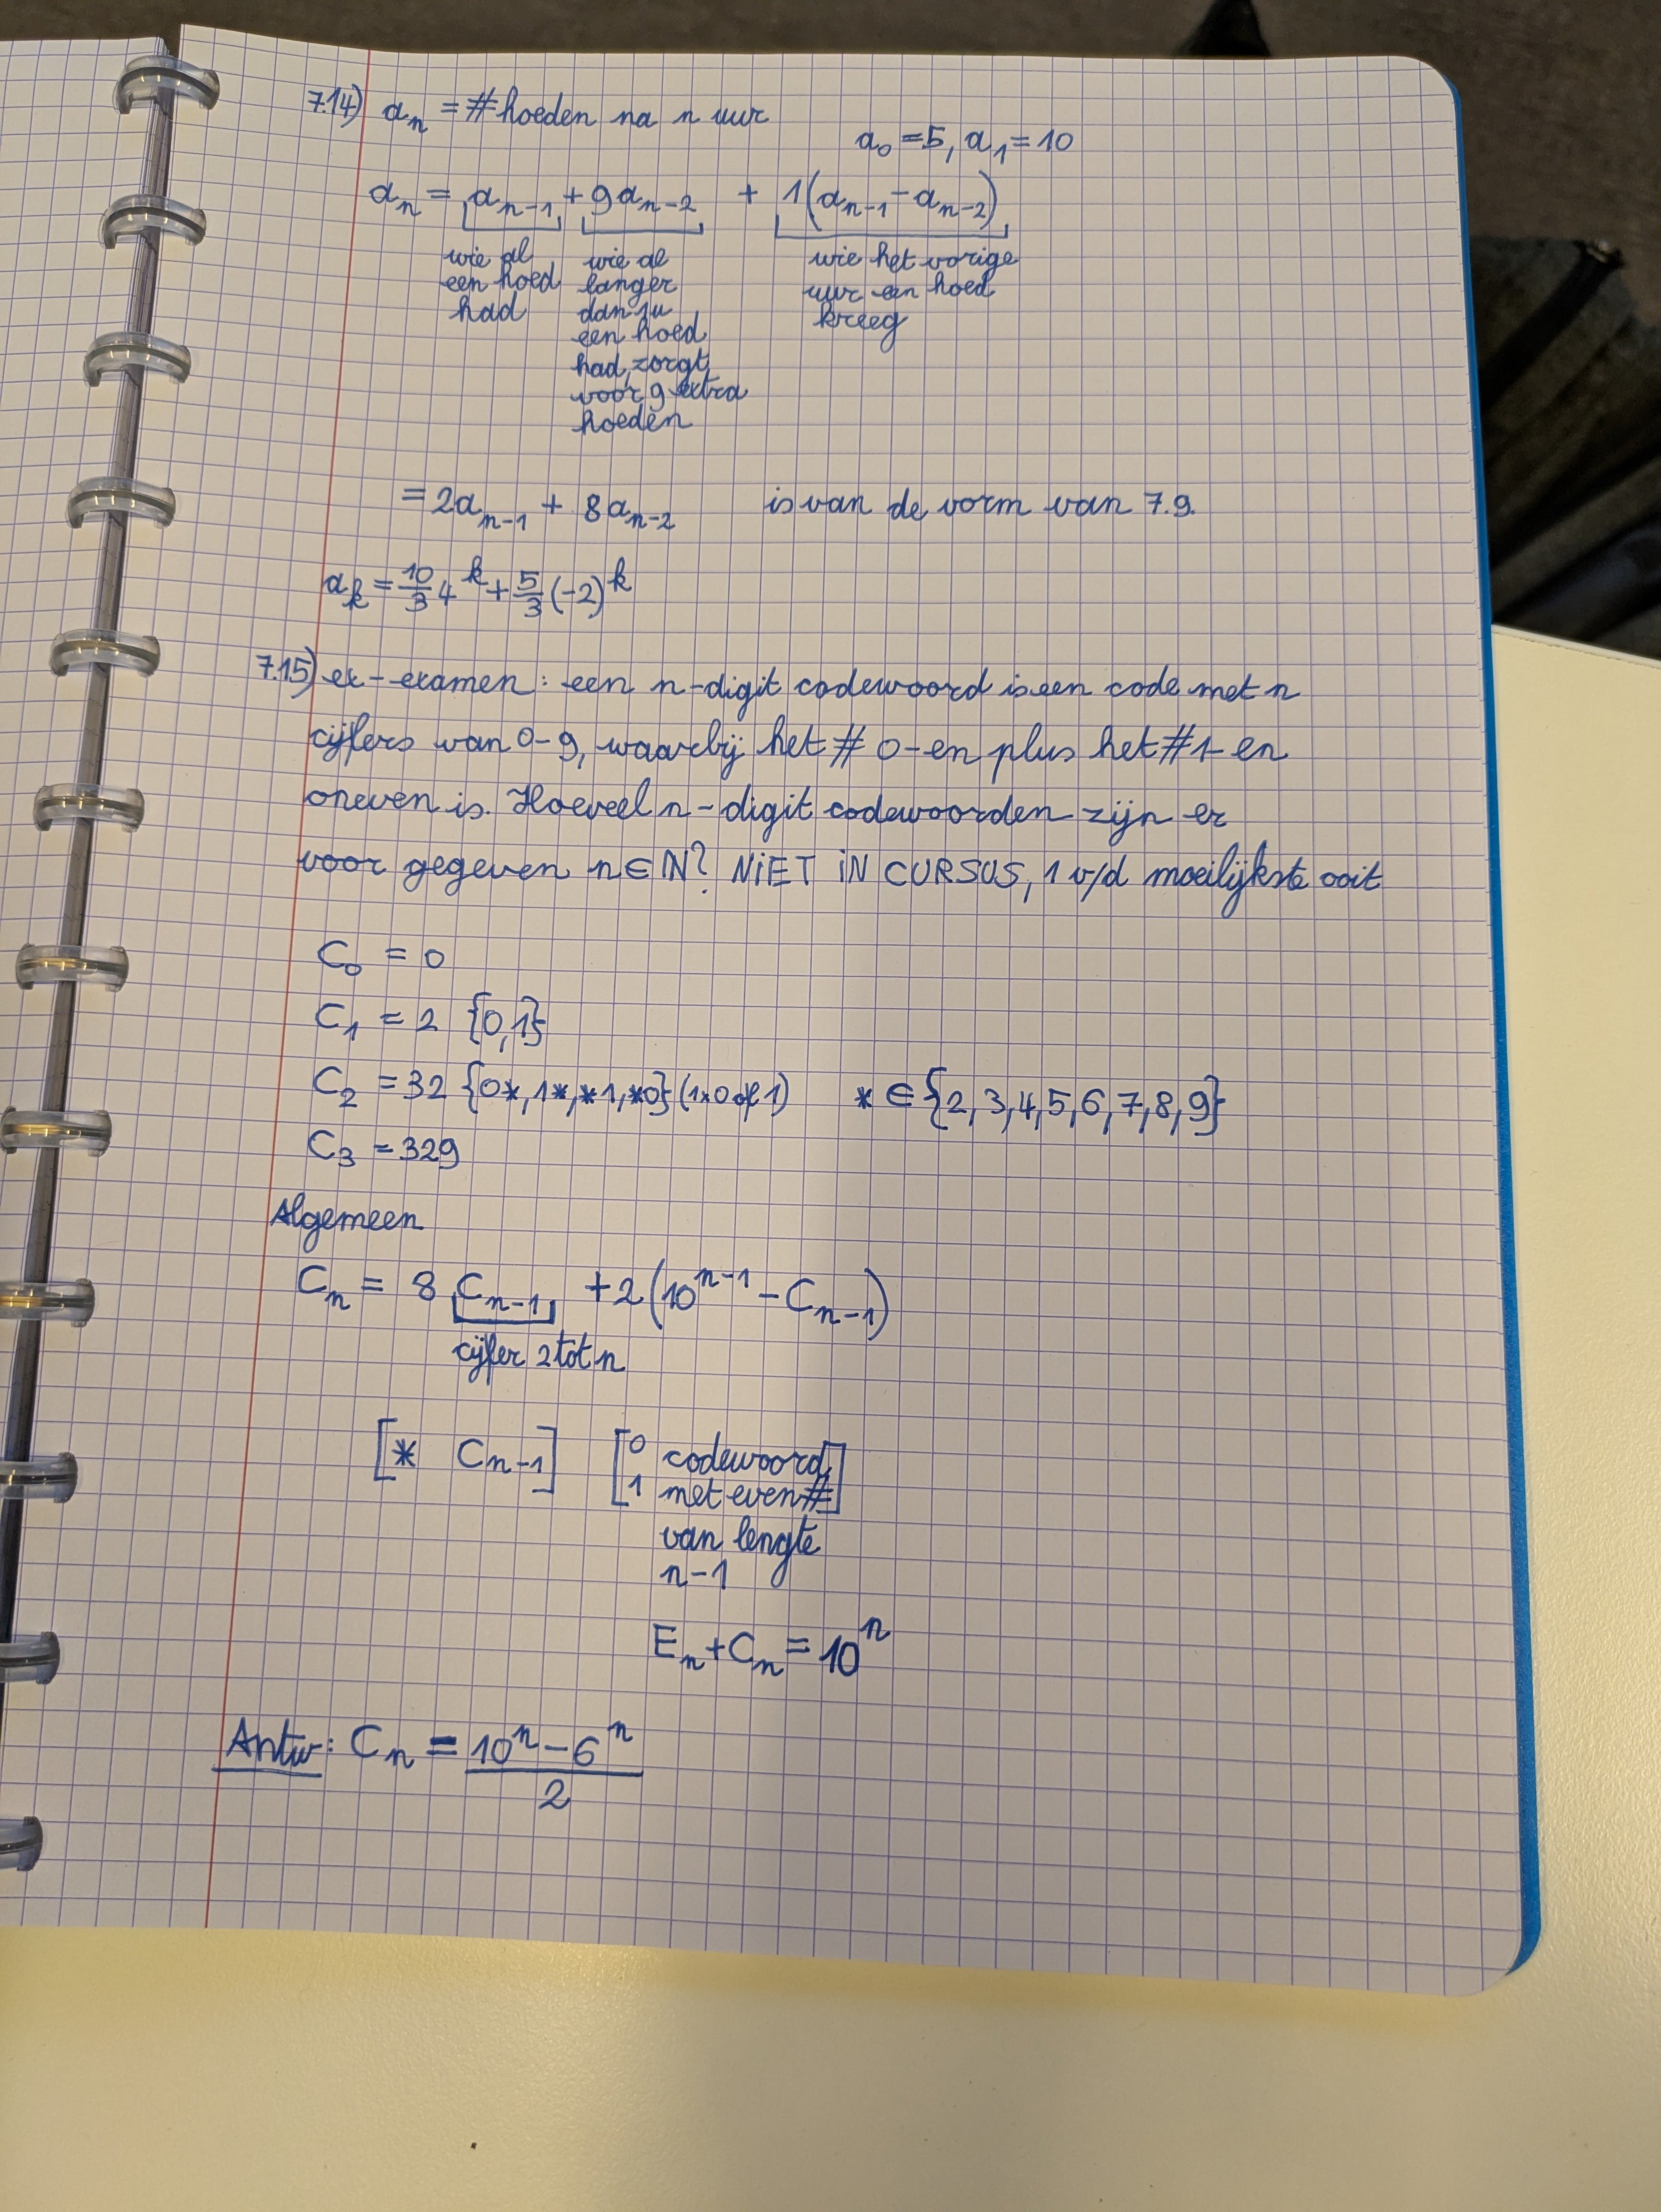 7.14) aₙ = # hoeden na n uur
a₀ = 5, a₁ = 10
aₙ = aₙ₋₁ + 9aₙ₋₂ + 1(aₙ₋₁ - aₙ₋₂)
wie al een hoed had
wie al langer dan 1u een hoed had, zorgt voor 9 extra hoeden
wie het vorige uur een hoed kreeg
= 2aₙ₋₁ + 8aₙ₋₂ is van de vorm van 7.9.
aₖ = 10/3 4^k + 5/3 (-2)^k
7.15) ex-examen: een n-digit codewoord is een code met n
cijfers van 0-9, waarbij het # 0-en plus het # 1-en
oneven is. Hoeveel n-digit codewoorden zijn er
voor gegeven n ∈ ℕ? NIET IN CURSUS, 1 v/d moeilijkste ooit
C₀ = 0
C₁ = 2 {0,1}
C₂ = 32 {0*, 1*, *1, *0} (1x0 of 1) * ∈ {2,3,4,5,6,7,8,9}
C₃ = 329
Algemeen
Cₙ = 8 Cₙ₋₁ + 2(10^(n-1) - Cₙ₋₁)
cijfer 2 tot n
[* Cₙ₋₁] [0 codewoord
1 met even #]
van lengte
n-1
Eₙ + Cₙ = 10^n
Antw: Cₙ = (10^n - 6^n)/2